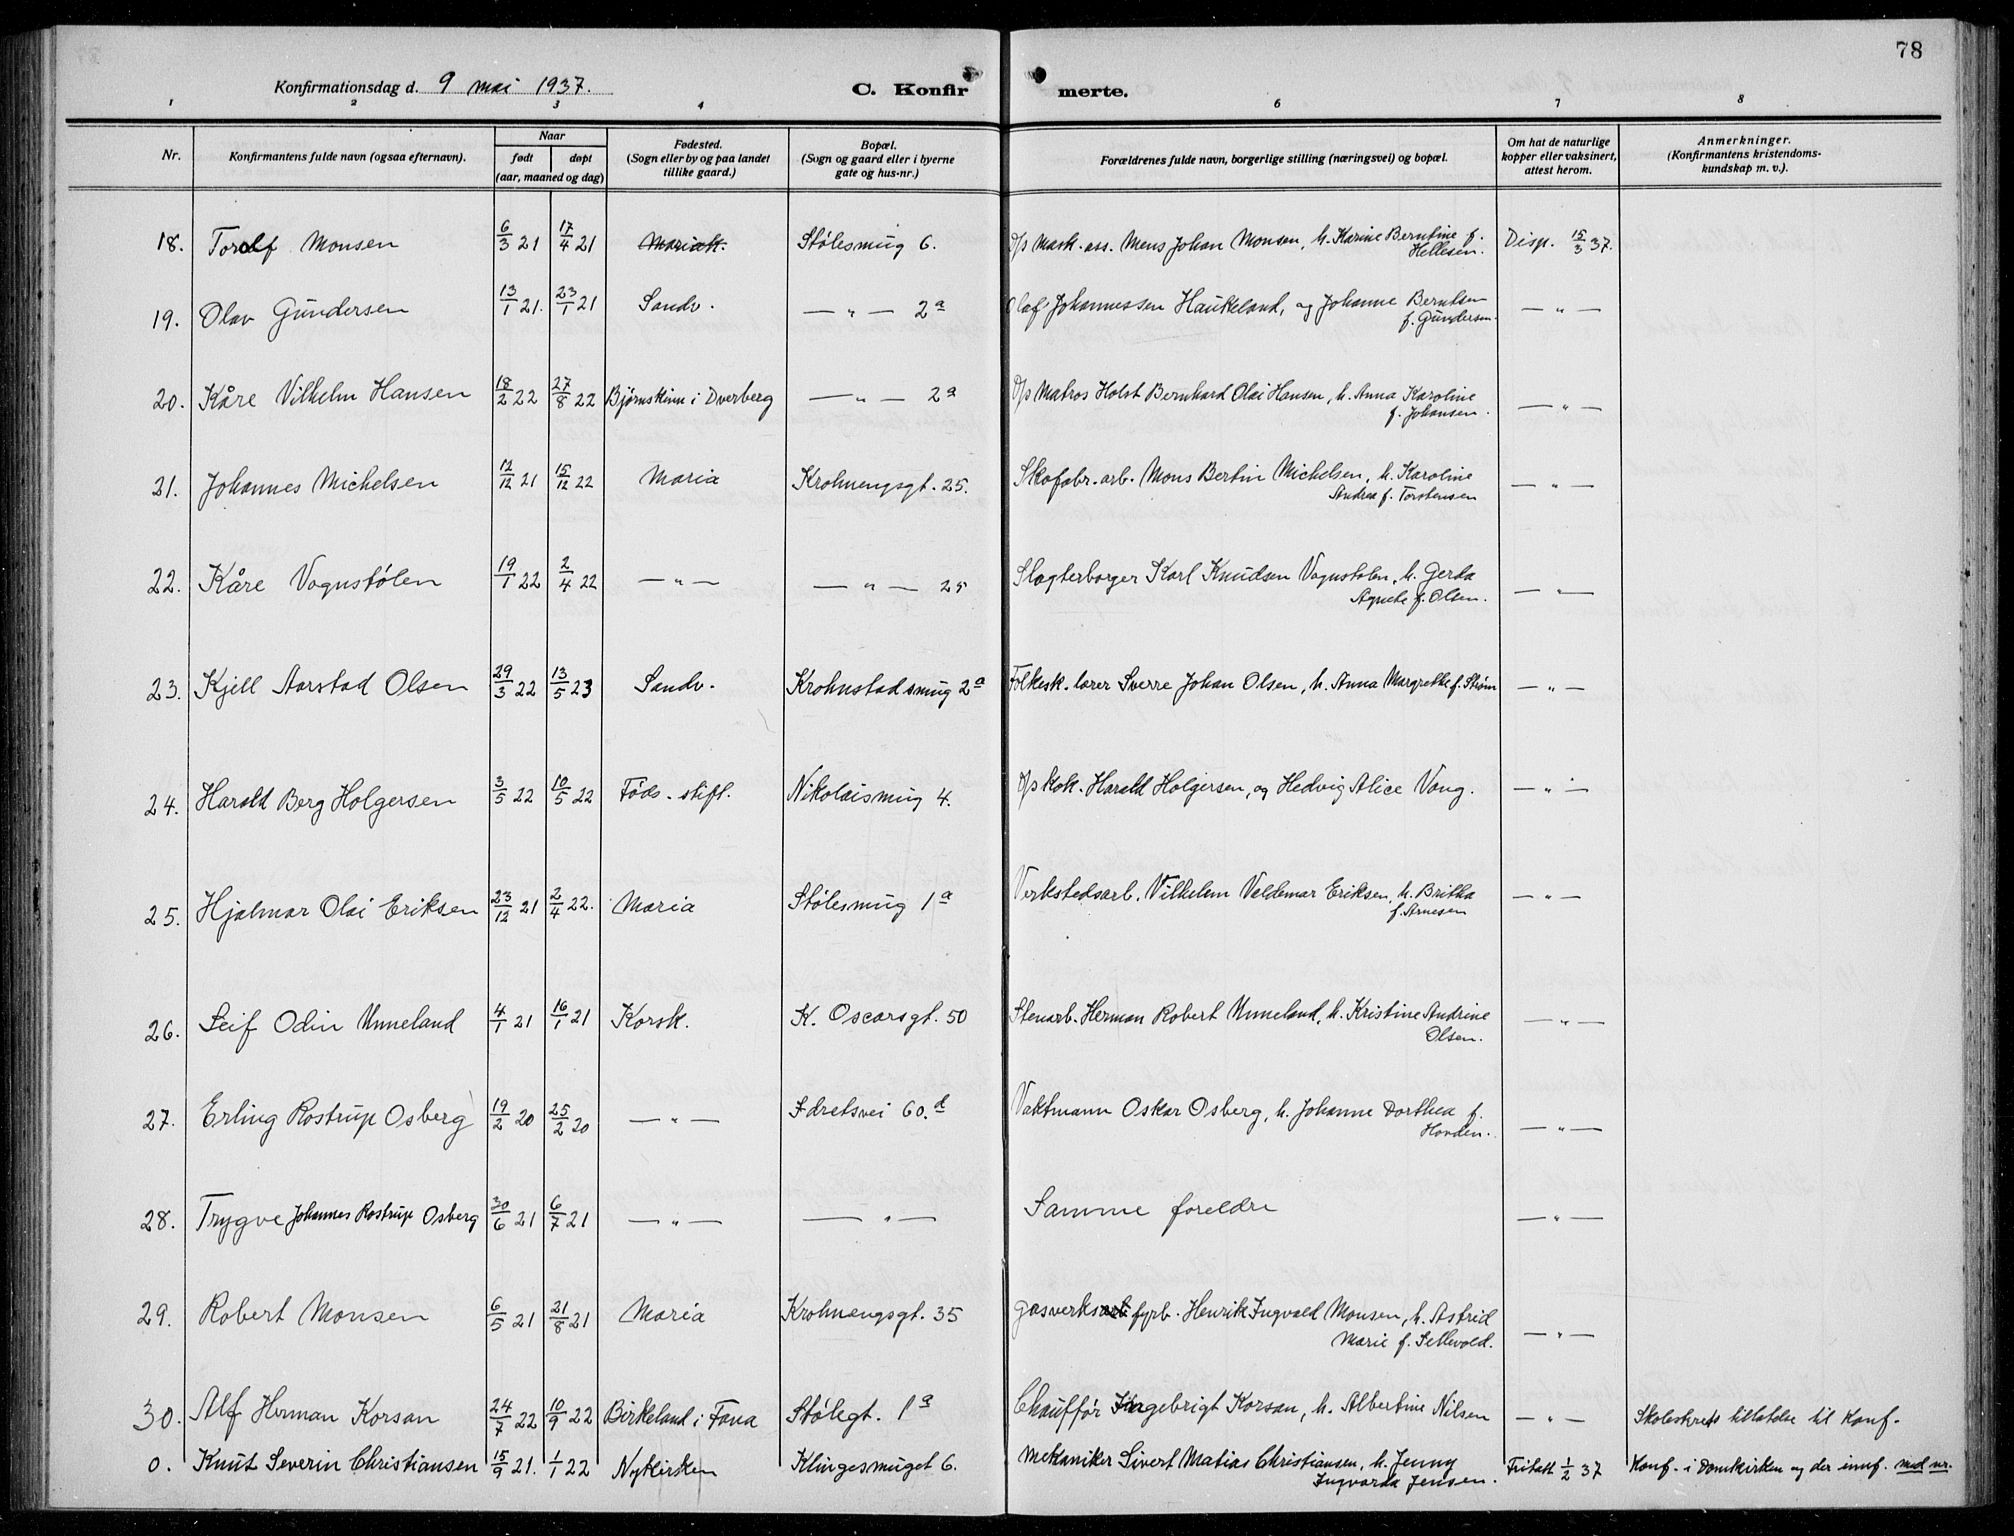 78
Konfirmationsdag d. 9 mai 1937. C. Konfirmerte.
1 2 3 4 6 7 8
Nr. Konfirmantens fulde navn (ogsaa efternavn). Naar født døpt (aar, maaned og dag) Fødested. (Sogn eller by og paa landet tillike gaard.) Bopæl. (Sogn og gaard eller i byerne gate og hus-nr.) Forældrenes fulde navn, borgerlige stilling (næringsvei) og bopæl. Om hat de naturlige kopper eller vaksinert, attest herom. Anmerkninger. (Konfirmantens kristendomskundskap m. v.).
18. Torolf Monsen 6/3 21 17/4 21 Mariak. Stølesmug 6. D/s Mask. ass. Mens Johan Monsen, h. Karine Berntine f. Hellesen. Disp. 15/3 37.
19. Olav Gundersen 13/1 21. 23/1 21 Sandv. — " — 2a Olaf Johannessen Haukeland, og Johanne Berntsen f. Gundersen. — " —
20. Kåre Vilhelm Hansen 18/2 22 27/8 22 Bjørnskinn i Dverberg — " — 2a D/s Matros Holst Bernhard Olai Hansen, h. Anna Karoline f. Johansen. — " —
21. Johannes Michelsen 12/12 21 15/12 22 Maria Krohnengsgt. 25. Skofabr. arb. Mons Bertin Michelsen, h. Karoline Andrea f. Torstensen — " —
22. Kåre Vognstølen 19/1 22 2/4 22 — " — — " — 25 Slagterborger Karl Knudsen Vognstolen, h. Gerda Agnethe f. Olsen. — " —
23. Kjell Aarstad Olsen 29/3 22 13/5 23 Sandv. Krohnstadsmug 2a Folkesk. lærer Sverre Johan Olsen, h. Anna Margrethe f. Strøm — " —
24. Harald Berg Holgersen 3/5 22 10/5 22 Føds. stift. Nikolaismug 4. D/s kok. Harald Holgersen, og Hedvig Alice Vang. — " —
25. Hjalmar Olai Eriksen 23/12 21 2/4 22. Maria Stølesmug 1a Verkstedsarb. Vilhelm Valdemar Eriksen, h. Britha f. Arnesen — " —
26. Leif Odin Unneland 4/1 21 16/1 21 Korsk. K. Oscarsgt. 50 Stenarb. Herman Robert Unneland, h. Kristine Andrine Olsen. — " —
27. Erling Rostrup Osberg 19/2 20 25/2 20 — " — Idretsvei 60.d Vaktmann Oskar Osberg, h. Johanne Dorthea f. Hovden. — " —
28. Trygve Johannes Rostrup Osberg 30/6 21 6/7 21 — " — — " — Samme foreldre — " —
29. Robert Monsen 6/5 21 21/8 21 Maria Krohnengsgt. 35 Gasverksarb fyrb. Henrik Ingvald Monsen, h. Astrid Marie f. Sellevold. — " —
30. Alf Herman Korsan 24/7 22 10/9 22 Birkeland i Fana Stølegt. 1a Chauffør Ingebrigt Korsan, h. Albertine Nilsen — " — Skolestyrets tillatelse til Konf.
0. Knut Severin Christiansen 15/9 21. 1/1 22 Nykirken Klingesmuget 6. Mekaniker Sivert Matias Christiansen, h. Jenny Ingvarda Jensen. Fritatt 1/2 37 Konf. i Domkirken og der innf. med nr.